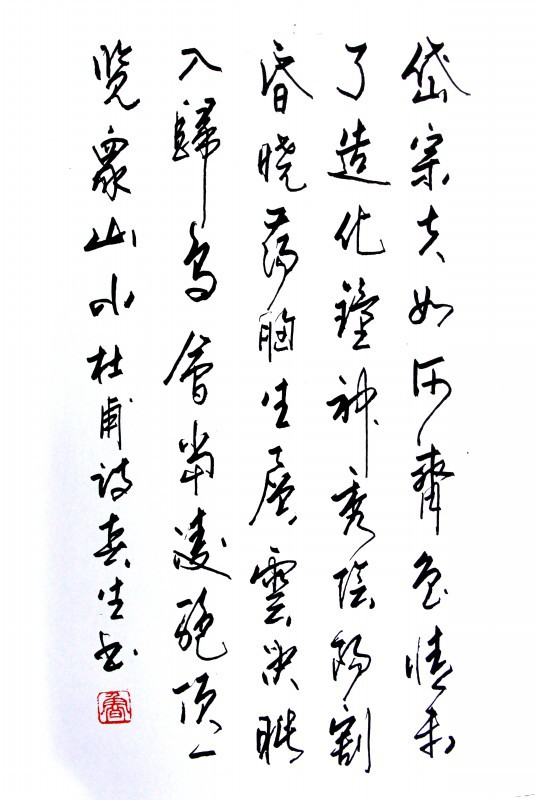 岱宗夫如何齊魯情未
了造化鐘神秀陰陽割
昏曉蕩胸生層雲決眦
入歸鳥會當凌絕頂一
覽眾山小杜甫詩春生書